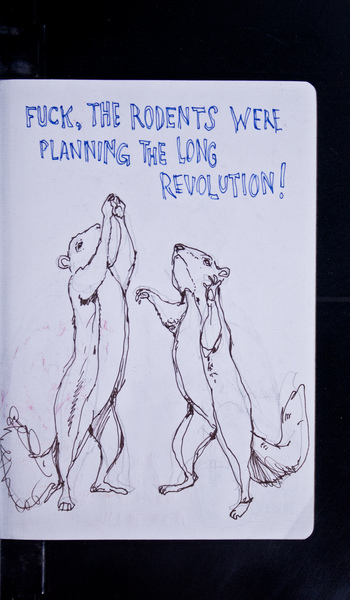 FUCK, THE RODENTS WERE
PLANNING THE LONG
REVOLUTION!